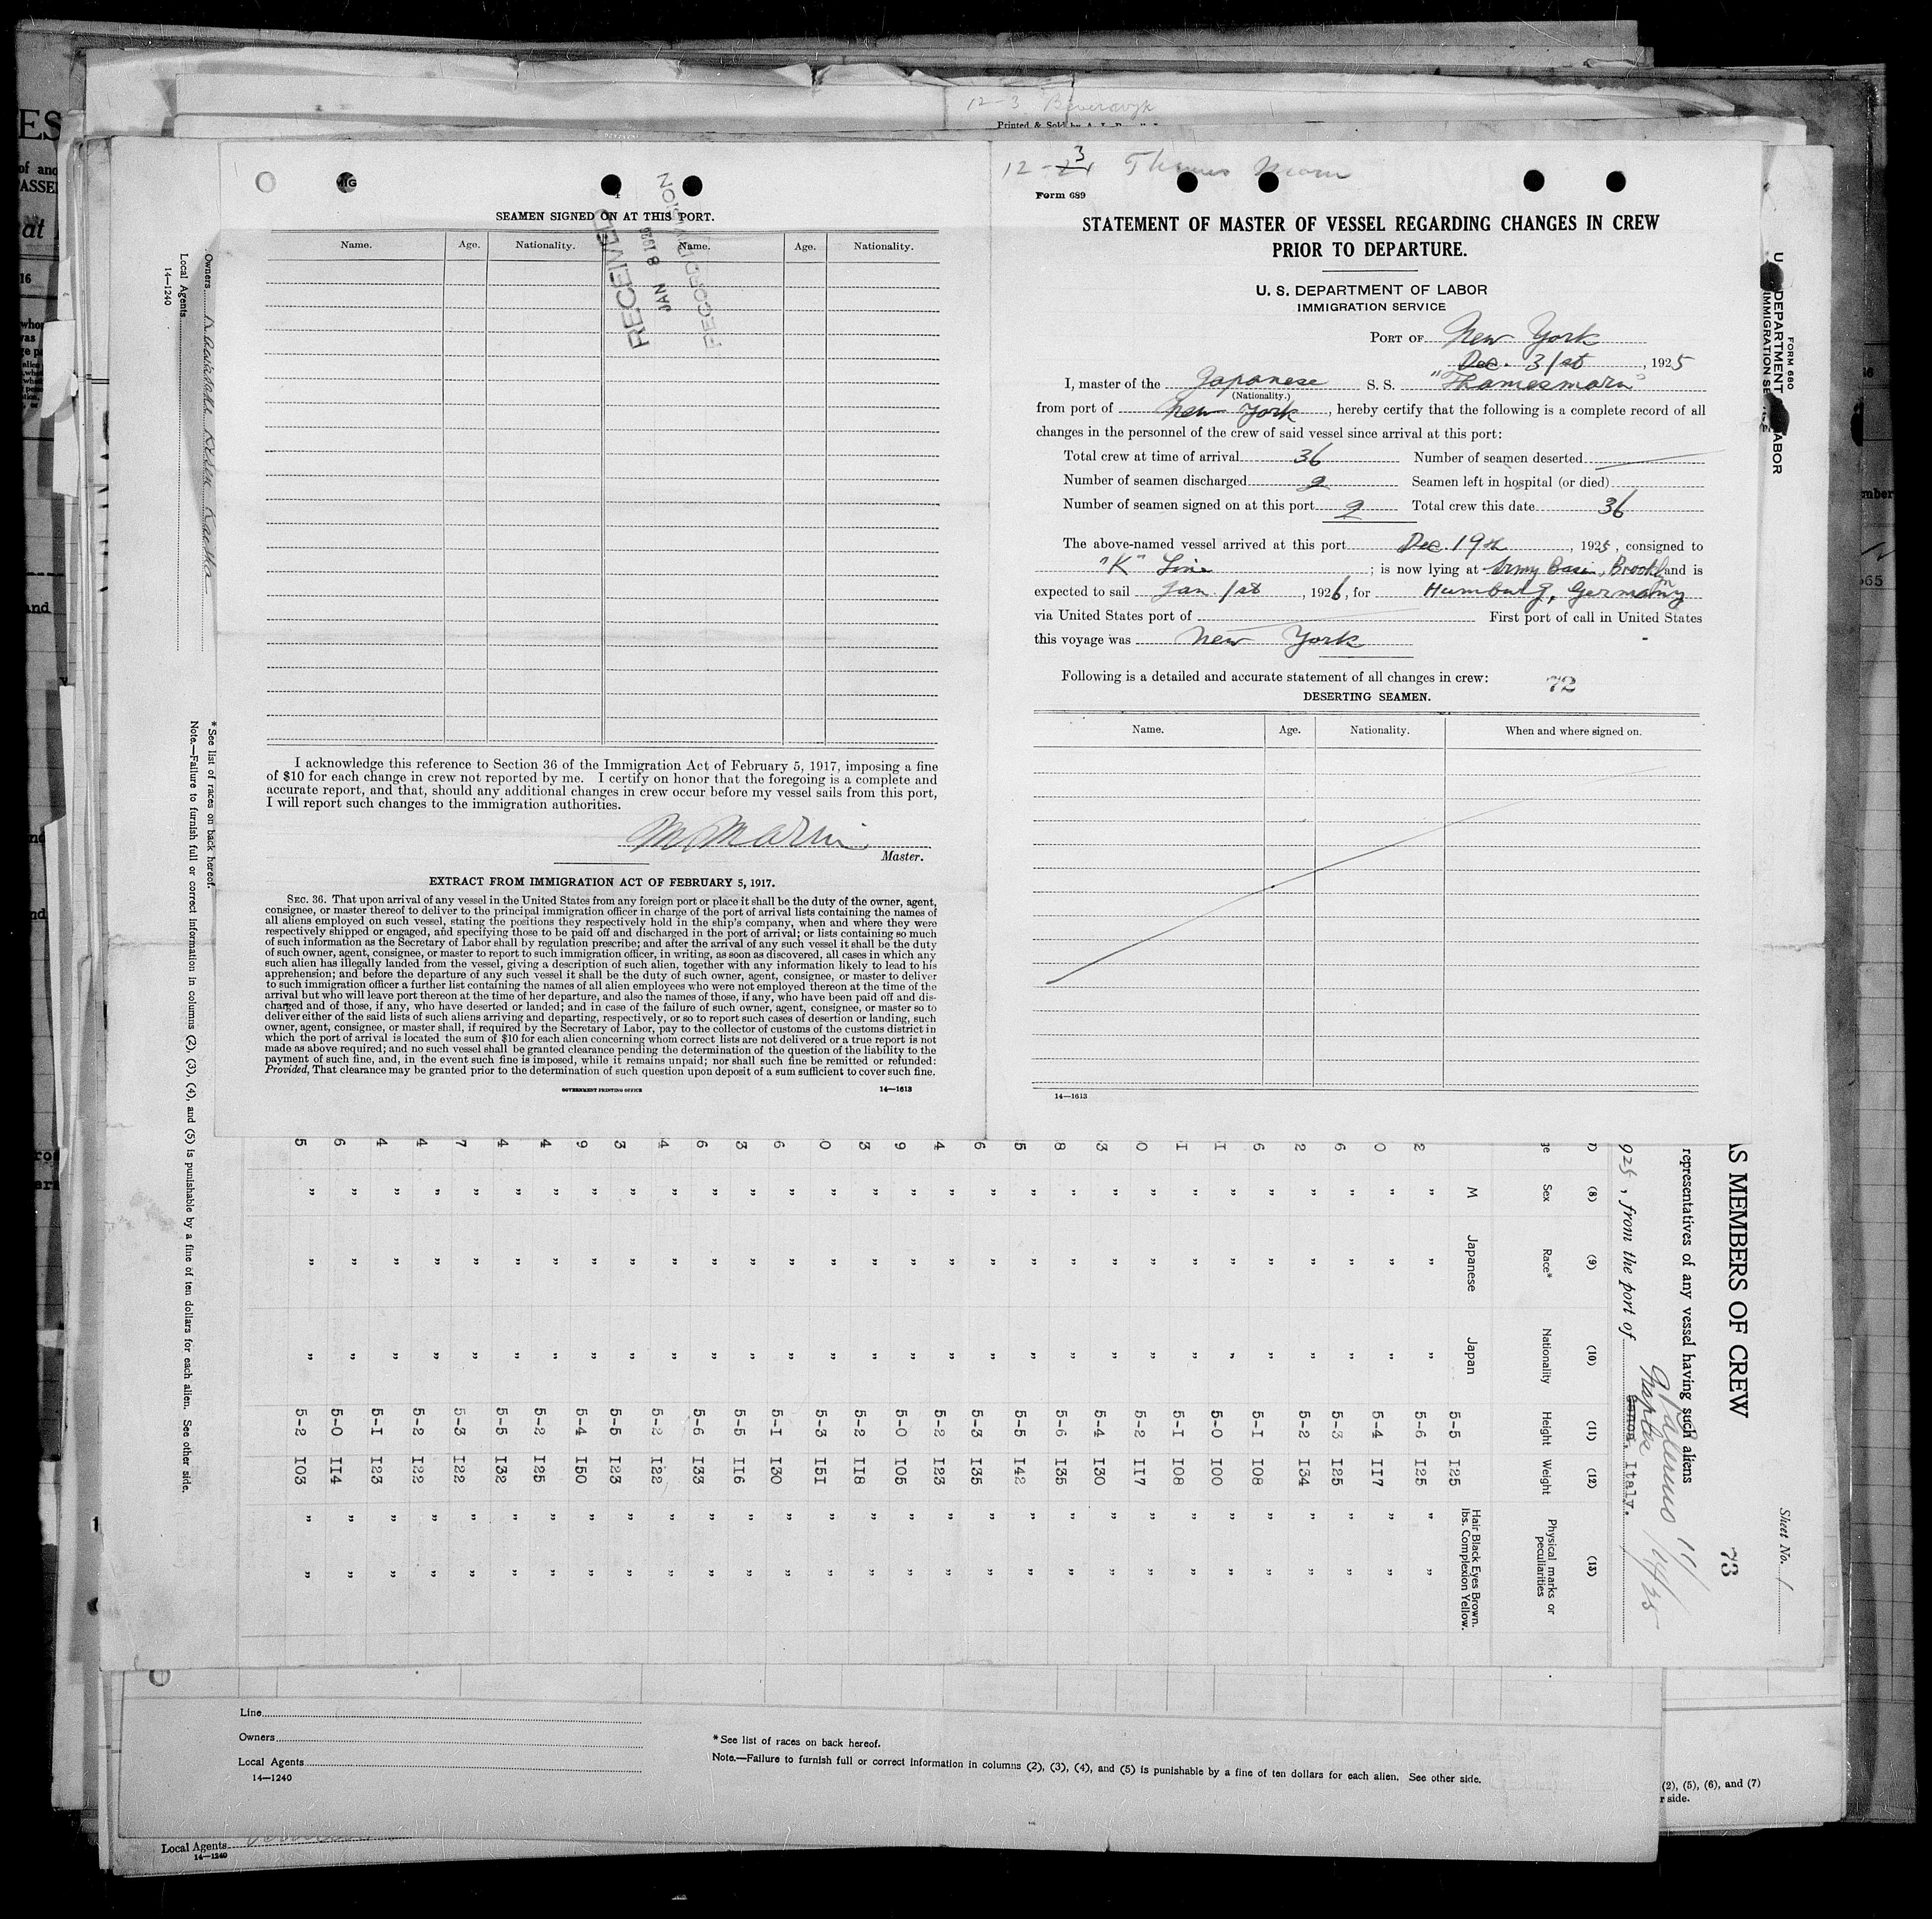 12-3 Beverwyk
Printed & Sold by
4
SEAMEN SIGNED ON AT THIS PORT.
Name. Age. Nationality. Name. Age. Nationality.
RECEIVED
JAN 8 1926
RECORD DIVISION
I acknowledge this reference to Section 36 of the Immigration Act of February 5, 1917, imposing a fine
of $10 for each change in crew not reported by me. I certify on honor that the foregoing is a complete and
accurate report, and that, should any additional changes in crew occur before my vessel sails from this port,
I will report such changes to the immigration authorities.
Master.
EXTRACT FROM IMMIGRATION ACT OF FEBRUARY 5, 1917.
SEC. 36. That upon arrival of any vessel in the United States from any foreign port or place it shall be the duty of the owner, agent,
consignee, or master thereof to deliver to the principal immigration officer in charge of the port of arrival lists containing the names of
all aliens employed on such vessel, stating the positions they respectively hold in the ship's company, when and where they were
respectively shipped or engaged, and specifying those to be paid off and discharged in the port of arrival; or lists containing so much
of such information as the Secretary of Labor shall by regulation prescribe; and after the arrival of any such vessel it shall be the duty
of such owner, agent, consignee, or master to report to such immigration officer, in writing, as soon as discovered, all cases in which any
such alien has illegally landed from the vessel, giving a description of such alien, together with any information likely to lead to his
apprehension; and before the departure of any such vessel it shall be the duty of such owner, agent, consignee, or master to deliver
to such immigration officer a further list containing the names of all alien employees who were not employed thereon at the time of the
arrival but who will leave port thereon at the time of her departure, and also the names of those, if any, who have been paid off and dis-
charged and of those, if any, who have deserted or landed; and in case of the failure of such owner, agent, consignee, or master so to
deliver either of the said lists of such aliens arriving and departing, respectively, or so to report such cases of desertion or landing, such
owner, agent, consignee, or master shall, if required by the Secretary of Labor, pay to the collector of customs of the customs district in
which the port of arrival is located the sum of $10 for each alien concerning whom correct lists are not delivered or a true report is not
made as above required; and no such vessel shall be granted clearance pending the determination of the question of the liability to the
payment of such fine, and, in the event such fine is imposed, while it remains unpaid; nor shall such fine be remitted or refunded:
Provided, That clearance may be granted prior to the determination of such question upon deposit of a sum sufficient to cover such fine.
GOVERNMENT PRINTING OFFICE 14—1613
12-3
Form 689
STATEMENT OF MASTER OF VESSEL REGARDING CHANGES IN CREW
PRIOR TO DEPARTURE.
U. S. DEPARTMENT OF LABOR
IMMIGRATION SERVICE
PORT OF New York
Dec. 31st, 1925
I, master of the Japanese S. S. "Thamesmaru"
(Nationality.)
from port of New York, hereby certify that the following is a complete record of all
changes in the personnel of the crew of said vessel since arrival at this port:
Total crew at time of arrival 36 Number of seamen deserted
Number of seamen discharged 2 Seamen left in hospital (or died)
Number of seamen signed on at this port 2 Total crew this date 36
The above-named vessel arrived at this port Dec. 19th, 1925, consigned to
"K" Line; is now lying at Army Base, Brooklyn and is
expected to sail Jan. 1st, 1926, for Humburg, Germany
via United States port of First port of call in United States
this voyage was New York
Following is a detailed and accurate statement of all changes in crew: 72
DESERTING SEAMEN.
Name. Age. Nationality. When and where signed on.
14—1613
FORM 680
U. DEPARTMENT LABOR
IMMIGRATION SE
Sheet No. 1
73
AS MEMBERS OF CREW
representatives of any vessel having such aliens
925, from the port of Genoa, Italy.
Palermo 11/14/25
(8) (9) (10) (11) (12) (13)
Sex Race* Nationality Height Weight Physical marks or peculiarities
M Japanese Japan 5-5 125 Hair Black Eyes Brown. lbs. Complexion Yellow.
2 " " " 5-6 125 " "
0 " " " 5-4 117 " "
6 " " " 5-3 125 " "
2 " " " 5-2 134 " "
6 " " " 5-1 108 " "
1 " " " 5-0 100 " "
1 " " " 5-1 108 " "
0 " " " 5-2 117 " "
3 " " " 5-4 130 " "
8 " " " 5-6 135 " "
5 " " " 5-5 142 " "
6 " " " 5-3 135 " "
4 " " " 5-2 123 " "
9 " " " 5-0 105 " "
3 " " " 5-2 118 " "
0 " " " 5-3 151 " "
6 " " " 5-1 130 " "
3 " " " 5-5 116 " "
6 " " " 5-6 133 " "
4 " " " 5-2 122 " "
3 " " " 5-5 123 " "
9 " " " 5-4 150 " "
4 " " " 5-2 125 " "
4 " " " 5-5 132 " "
7 " " " 5-3 122 " "
4 " " " 5-2 122 " "
4 " " " 5-1 123 " "
6 " " " 5-0 114 " "
5 " " " 5-2 103 " "
* See list of races on back hereof.
Note.—Failure to furnish full or correct information in columns (2), (3), (4), and (5) is punishable by a fine of ten dollars for each alien. See other side.
Owners Kawasaki Kisen Kaisha
Local Agents
14—1240
Line
Owners
Local Agents
14—1240
* See list of races on back hereof.
Note.—Failure to furnish full or correct information in columns (2), (3), (4), and (5) is punishable by a fine of ten dollars for each alien. See other side.
(2), (5), (6), and (7)
r side.
Local Agents
14—1240